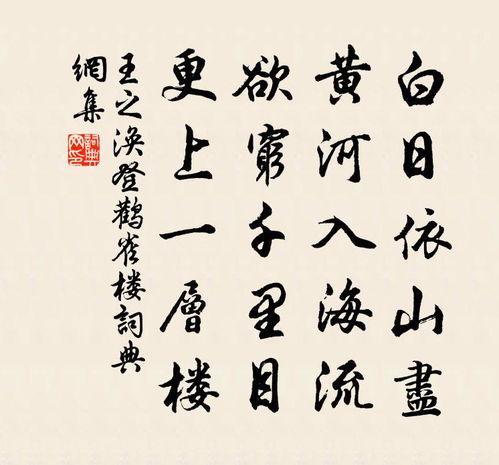 白日依山盡
黄河入海流
欲窮千里目
更上一層楼
王之涣登鹳雀楼詞典
網集